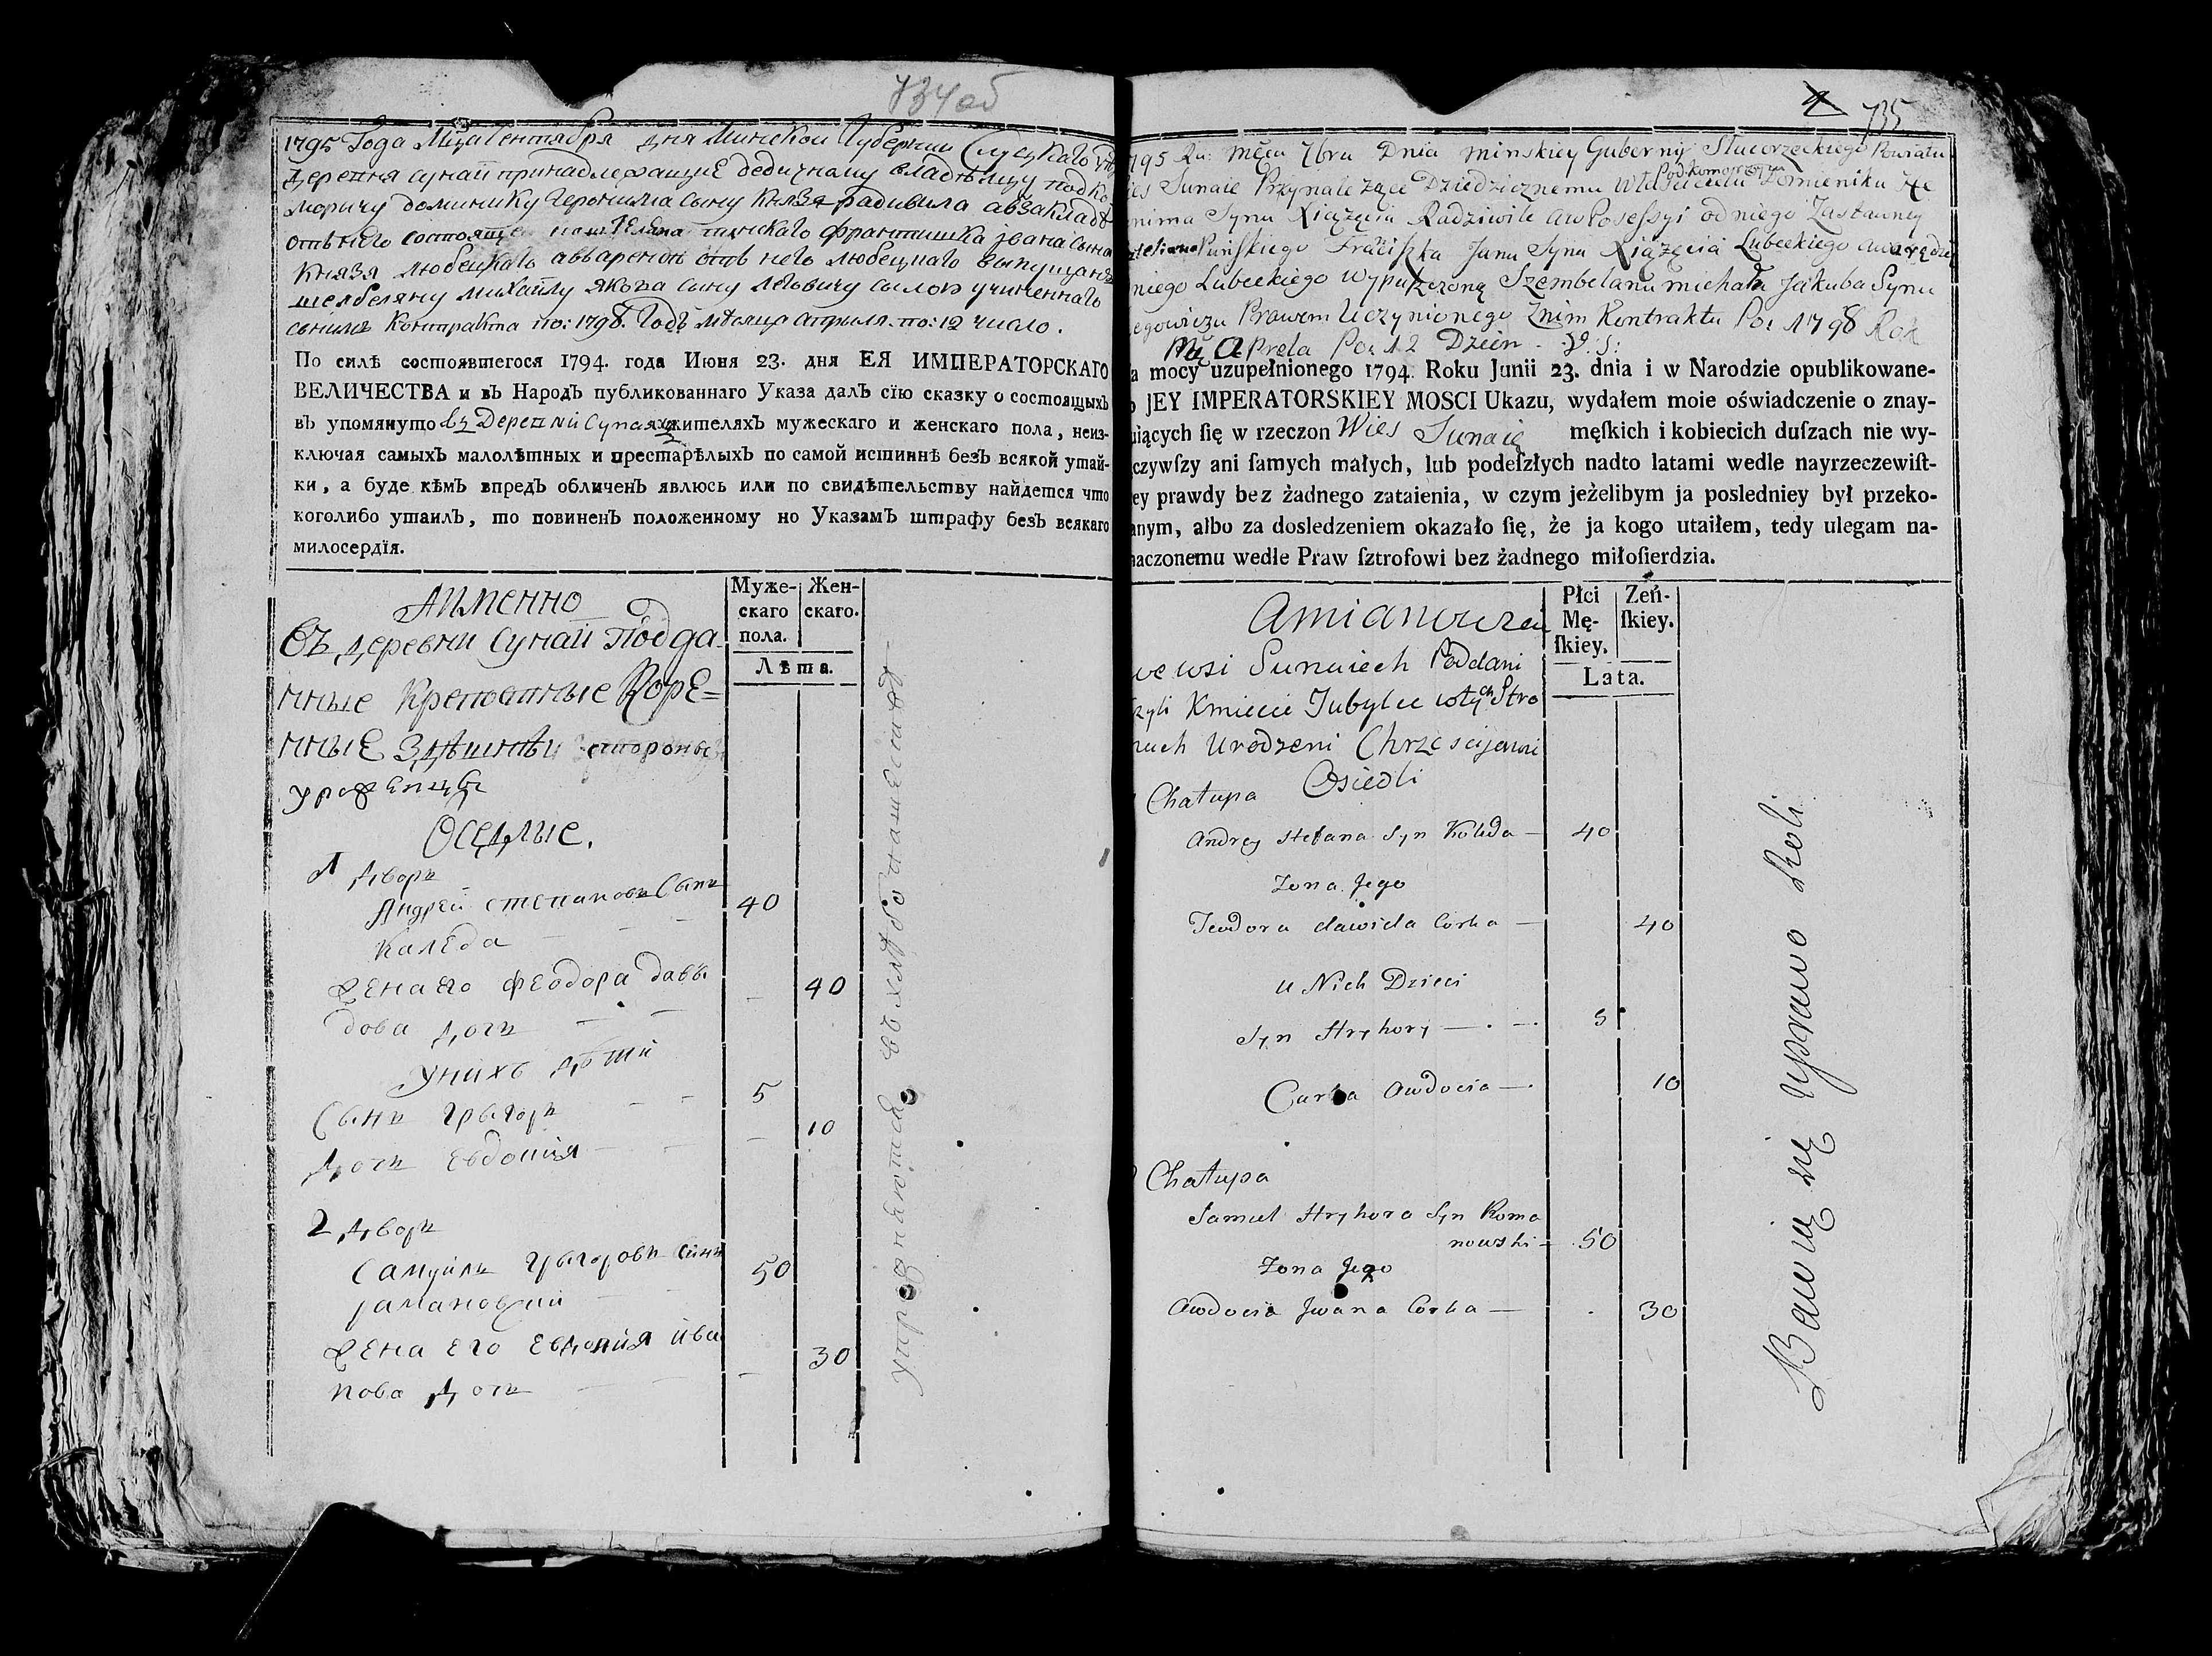 734об
1795 Года Мца Сентября дня Минской Губернии Слуцкаго
Деревня Сунаи принадлежащие дедичному владелцу подко
моричу доминику Геронима сыну Князя радивила авзакладе
отънего состояще пинскаго францишка ивана сына
Князя любецкаго авварендъ отъ него любецкаго выпущана
шелбеляну михайлу якопа сыну леговичу силою учиненнаго
снимъ контракта по: 1798. Годъ месяца априля. по: 12 число.
По силѣ состоявшегося 1794. года Июня 23. дня ЕЯ ИМПЕРАТОРСКАГО
ВЕЛИЧЕСТВА и въ Народъ публикованнаго Указа далъ сїю сказку о состоящыхъ
въ упомянуто въ Деревни Сунаях жителяхъ мужескаго и женскаго пола, неиз-
ключая самыхъ малолѣтных и престарѣлыхъ по самой истиннѣ безъ всякой утай-
ки, а буде кѣмъ впредъ обличенъ явлюсь или по свидѣтельству найдется что
коголибо утаилъ, то повиненъ положенному по Указамъ штрафу безъ всякаго
милосердїя.
Муже-
скаго
пола.
Жен-
скаго.
Лѣта.
Аименно
Въ деревни Сунаи подда
нные крепостные коре=
нные здѣшнѣи стороны
уроженцы
Оседлые.
1 дворъ
Андрей степановъ Сынъ
Каледа — 40
жена его феодора давы
дова дочь — 40
Унихъ дѣти
Сынъ грыгоръ — 5
дочь Евдоция — 10
2 дворъ
Самуилъ грыгоровъ сынъ 50
рамановский
жена его Евдоция ива 30
нова дочь —
упражняются въ хлѣбопашестве
4 735
1795 Ru: Mca 7bra Dnia Minskiey Gubernij Słucorzeckiego Powiatu
Podkomorzemu
Sunaie Przynależące Dziedzicznemu Właścicielu Domieniku He
nima Synu Xiążęcia Radziwile aw Posessyi od niego Zastawney
Pinſkiego Franciſzka Jana Syna Xiążęcia Lubeckiego awarędzie
niego Lubeckiego wypuſzczoną Szembelanu michała Jakuba Synu
egowiczu Prawem Uczynionego Znim Kontraktu Po: 1798 Rok
Mca Aprela Po: 12 Dzień
a mocy uzupełnionego 1794. Roku Junii 23. dnia i w Narodzie opublikowane-
o JEY IMPERATORSKIEY MOSCI Ukazu, wydałem moie oświadczenie o znay-
uiących ſię w rzeczon Wies Sunaię męſkich i kobiecich duſzach nie wy-
czywſzy ani ſamych małych, lub podeſzłych nadto latami wedle nayrzeczewiſt-
ey prawdy bez żadnego zataienia, w czym jeżelibym ja posledniey był przeko-
anym, albo za dosledzeniem okazało ſię, że ja kogo utaiłem, tedy ulegam na-
naczonemu wedle Praw ſztrofowi bez żadnego miłoſierdzia.
Płci
Mę-
ſkiey.
Zeń-
ſkiey.
Lata.
Amianowicie
we wsi Sunaiech Poddani
zyli Kmiecie Tubylce wtych Stro
nach Urodzeni Chrzescijanie
Osiedli
Chałupa
Andrey Stefana Syn Koleda — 40
Zona Jego
Teodora dawida Corka — 40
u Nich Dzieci
Syn Hryhory — 5
Curka Awdocia — 10
Chałupa
Samuel Hryhora Syn Roma
nowski — 50
Zona Jego
Awdocia Jwana Corka — 30
Bawią się uprawą Roli